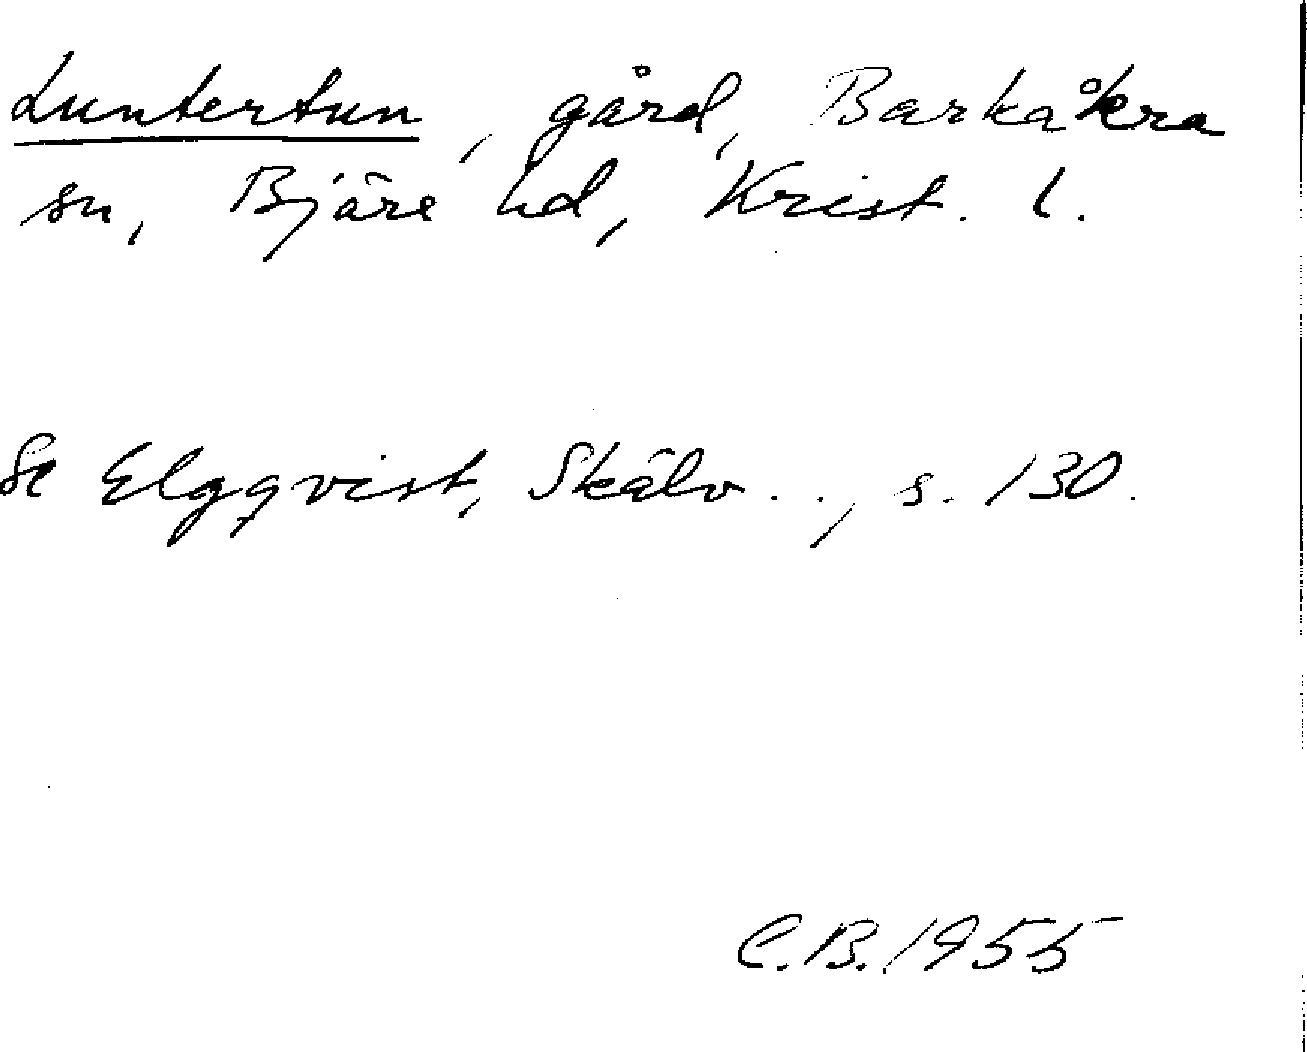 Luntertun, gård, Barkåkra
sn, Bjäre hd, Krist. l.
Se Elgqvist, Skälv . . , s. 130.
C.B. 1955